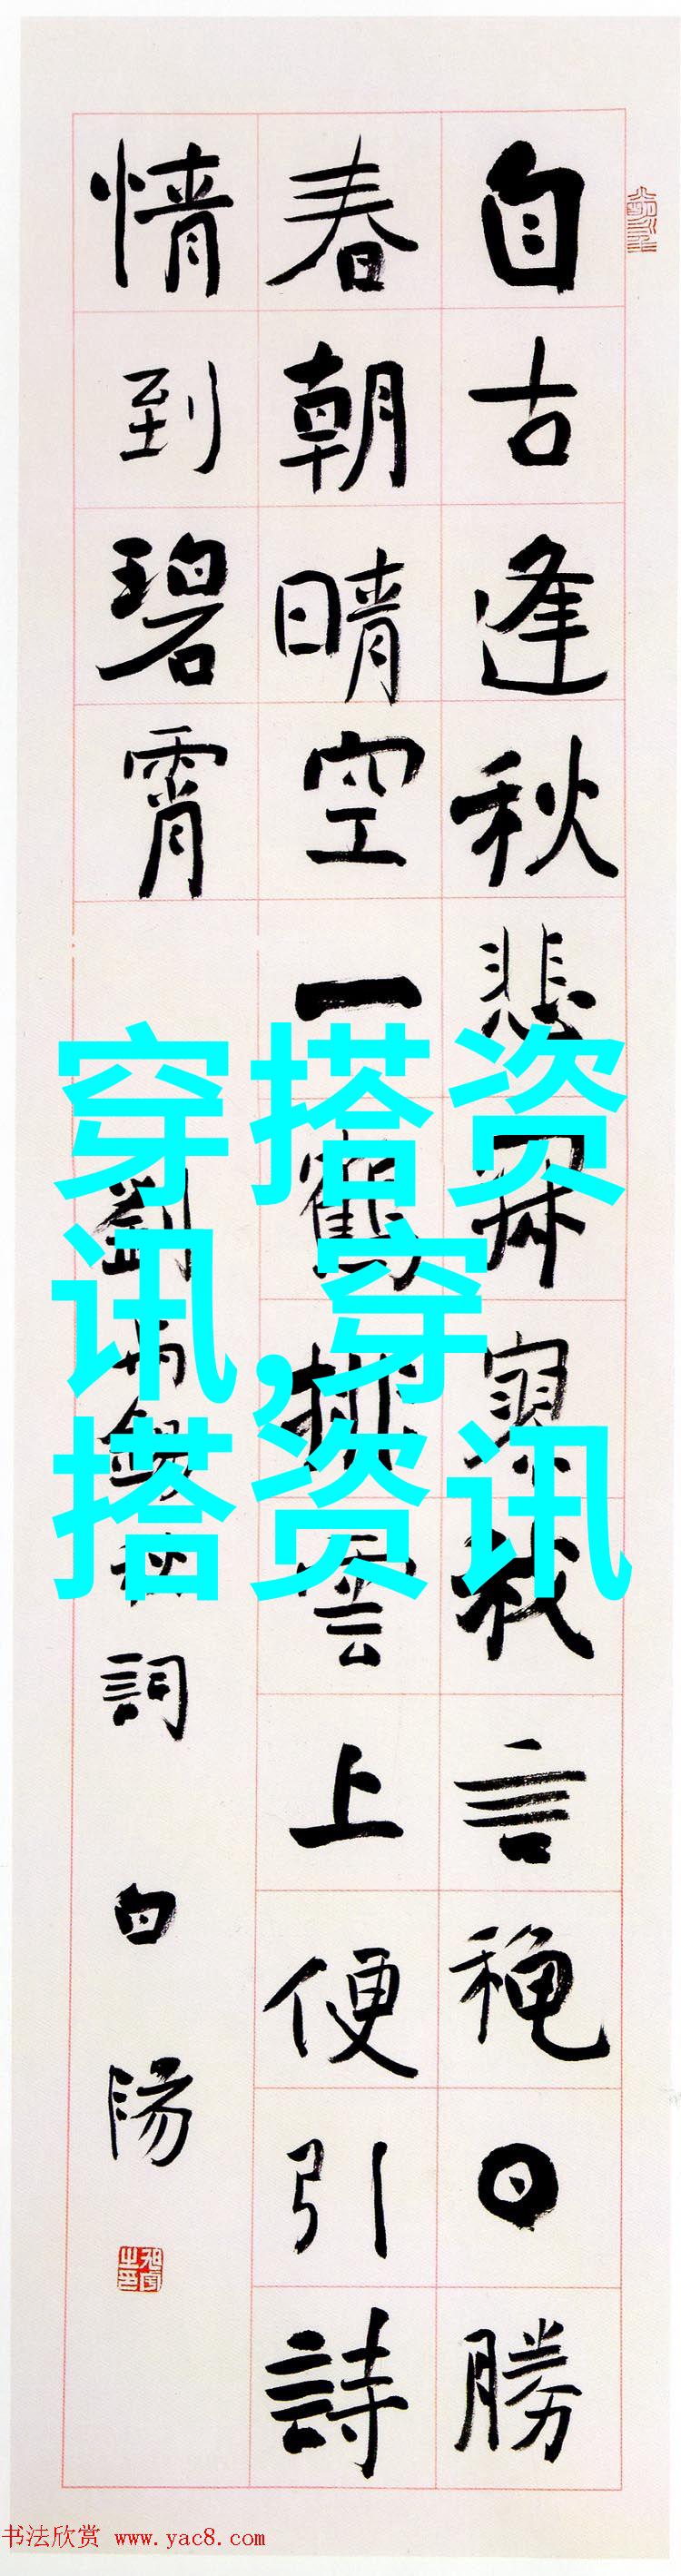 自古逢秋悲寂寥我言穐日勝
春朝晴空一鶴排雲上便引詩
情到碧霄 劉禹錫秋詞 白陽
穿搭资
讯,穿
搭资讯
书法欣赏 www.yac8.com